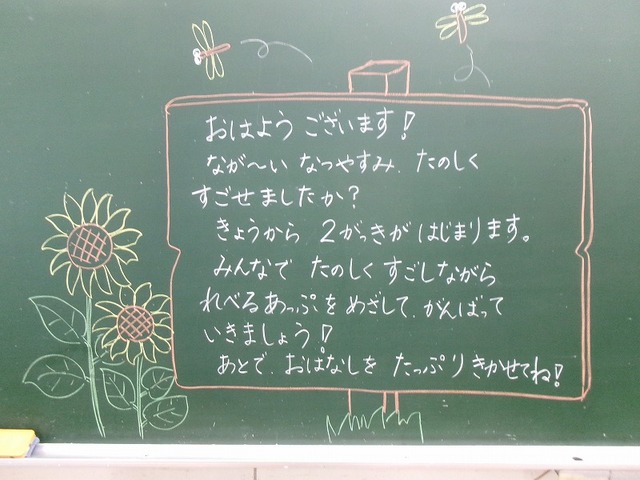 おはよう ございます!
なが〜い なつやすみ、たのしく
すごせましたか?
きょうから 2がっきが はじまります。
みんなで たのしく すごしながら
れべるあっぷを めざして、がんばって
いきましょう!
あとで、おはなしを たっぷりきかせてね!